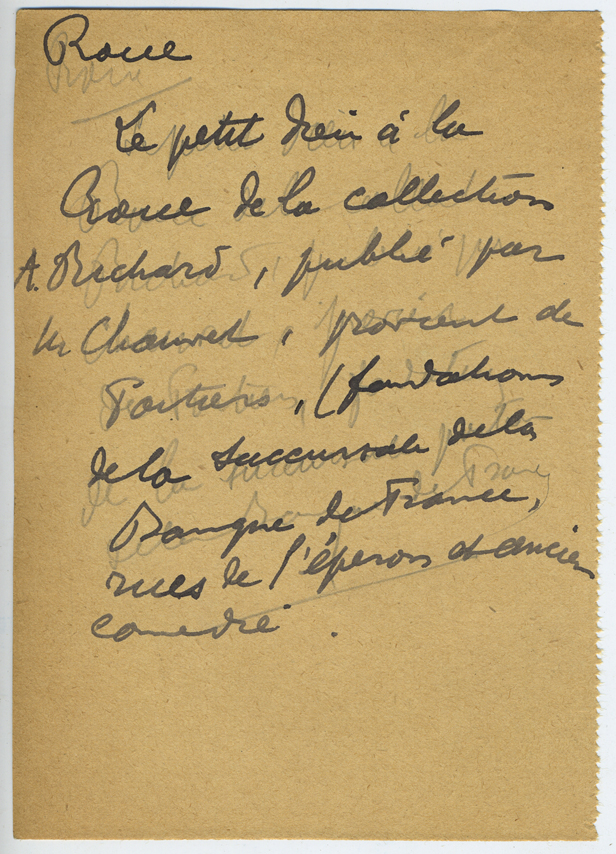 Roue
Le petit Dieu à la
Roue de la collection
A. Richard, publié par
Mr Chauvet, provient de
Poitiers, (fondations
de la succursale de la
Banque de France,
rues de l'éperon et ancien
comédie .